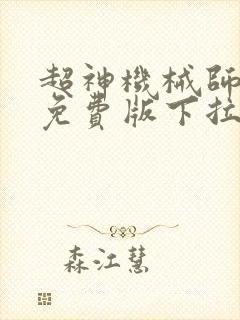 超神機械師
免費版下拉
森江慧